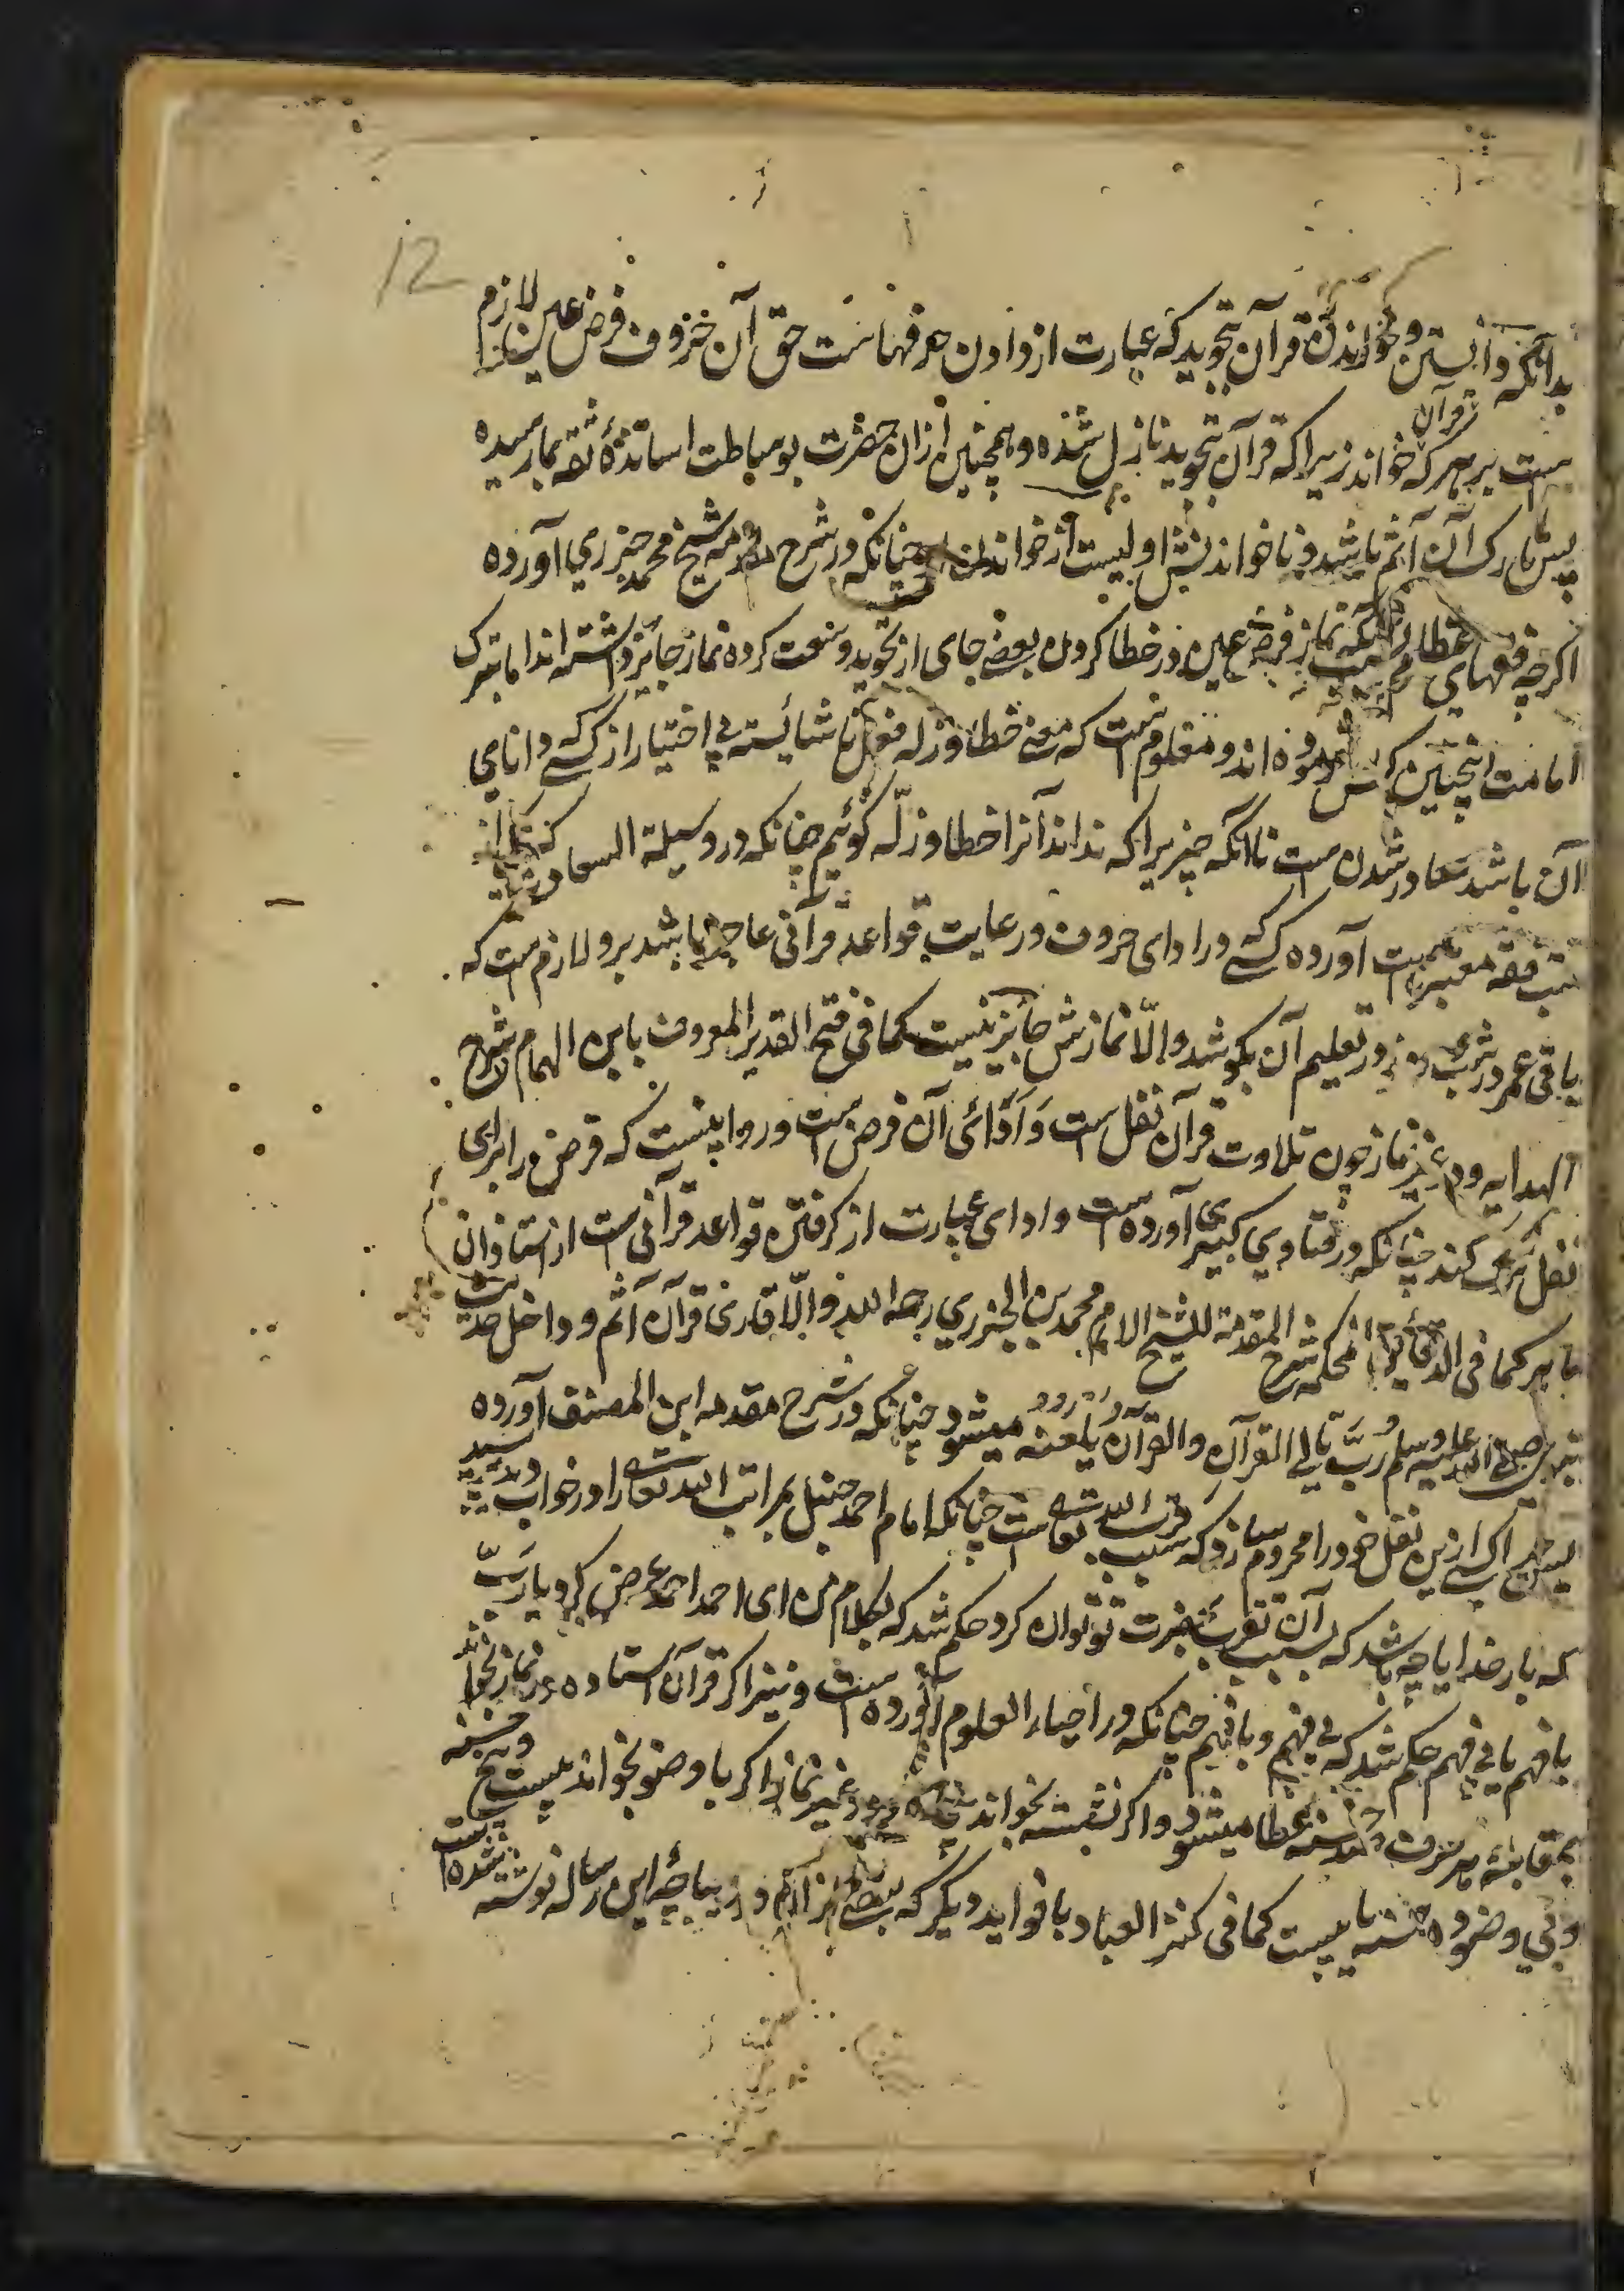 12
بدانکه دانستن و خواندن قرآن بتجوید که عبارت از دادن حرفهاست حق آن حروف فرض عین لازم
است بر هر که قرآن خواند زیرا که قرآن بتجوید نازل شده و همچنین ازان حضرت بوساطت اساتذهٔ ثقه بما رسیده
پس تارک آن آثم باشد و ناخواندنش اولیست از خواندن چنانکه در شرح مقدمه شیخ محمد جزری آورده
اگرچه فقهای نماز فرض عین در خطا کردن بعضی جای از تجوید وسعت کرده نماز جائز داشته اند اما بترک
امامت اینچنین کس فرموده اند و معلوم است که معنی خطا و زله فعل ناشائسته بی اختیار از کسی که دانای
آن باشد صادر شدن است ناآنکه چیزیرا که نداند آنرا خطا و زلّه گوئیم چنانکه در وسیلة السعادت که از
کتب فقه معتبر است آورده کسی که در ادای حروف و رعایت قواعد قرآنی عاجز باشد برو لازم است که
باقی عمر در شب و روز در تعلیم آن بکوشد و الّا نمازش جایز نیست کما فی فتح القدیر المعروف بابن الهمام شرح
الهدایه و در غیر نماز چون تلاوت قرآن نفل است و ادائی آن فرض است و روا نیست که فرض را برای
نفل ترک کند چنانکه در فتاوی کبیری آورده است و ادای عبارت از گرفتن قواعد قرآنی است از استاذان
ماهر کما فی الدقائق المحکمه شرح المقدمة للشیخ الامام محمد بن الجزری رحمه الله و الّا قارئ قرآن آثم و داخل حدیث
صلی الله علیه وسلم رُبَّ تالی القرآن والقرآن یلعنه میشود چنانکه در شرح مقدمه ابن المصنف آورده
کسی ازین نفل خود را محروم سازد که سبب قرب الله تعالی است چنانکه امام احمد حنبل بمراتب الله تعالی را در خواب دید پرسید
که بار خدایا چه باشد که بسبب آن تقرب بحضرت تو توان کرد حکم شد که بکلام من ای احمد احمد عرض کرد یا رَبّ
بافهم یا بی فهم حکم شد که بی فهم و بافهم چنانکه در احیاء العلوم آورده است و نیز اگر قرآن استاده در نماز بخواند
بمقابلهٔ هر حرف حسنه عطا میشود و اگر نشسته بخواند پنجاه و در غیر نماز اگر با وضو بخواند بیست و پنج حسنه
و بی وضو ده حسنه یابیست کما فی کنز العباد با فواید دیگر که بعضی از آنها در دیباچهٔ این رساله نوشته شده است